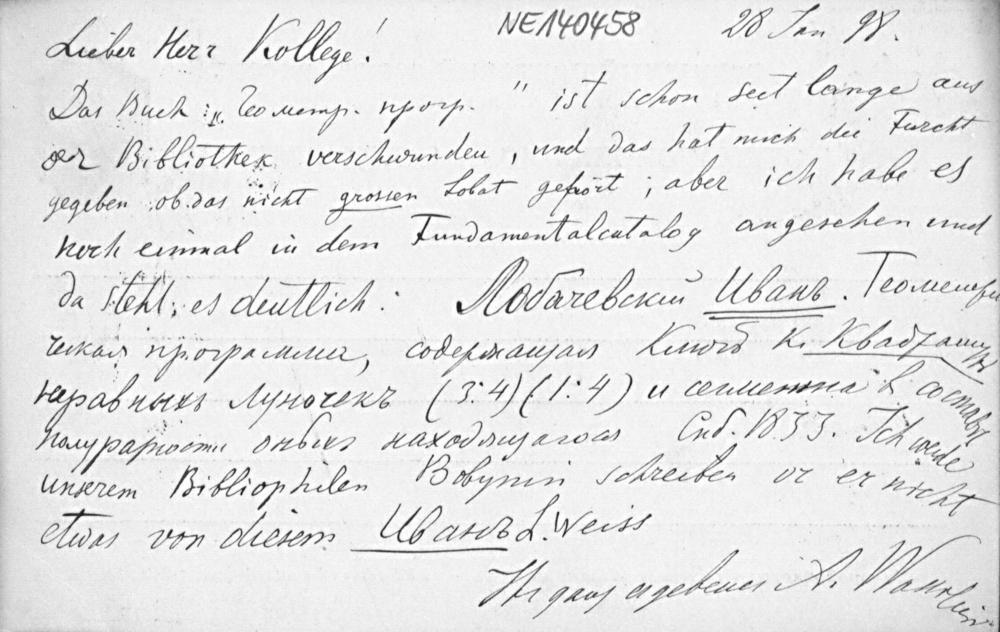 NE140458 28 Jan 98.
Lieber Herr Kollege!
Das Buch: „Геометр. прогр." ist schon seit lange aus
der Bibliothek verschwunden, und das hat mich die Furcht
gegeben ob das nicht grossen Lobat gehört; aber ich habe es
noch einmal in dem Fundamentalcatalog angesehen und
da steht es deutlich: Лобачевский Иванъ. Геометри
ческая программа, содержащая ключъ к Квадратур
неравныхъ луночекъ (3:4) (1:4) и сегмента в составѣ
полуразности онбихъ находящагося Спб. 1833. Ich werde
unserem Bibliophilen Bobynin schreiben or er nicht
etwas von diesem Иванъ L. Weiss
Ihr ganz ergebener A. Wassiliew